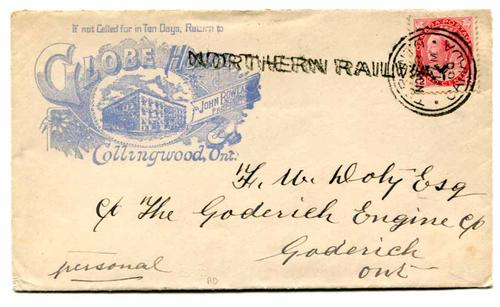 If not Called for in Ten Days, Return to
GLOBE
NORTHERN RAILWAY
JOHN
PROP.
Collingwood, Ont.
F. W. Doty Esq
c/o The Goderich Engine Co
Goderich
Ont
personal